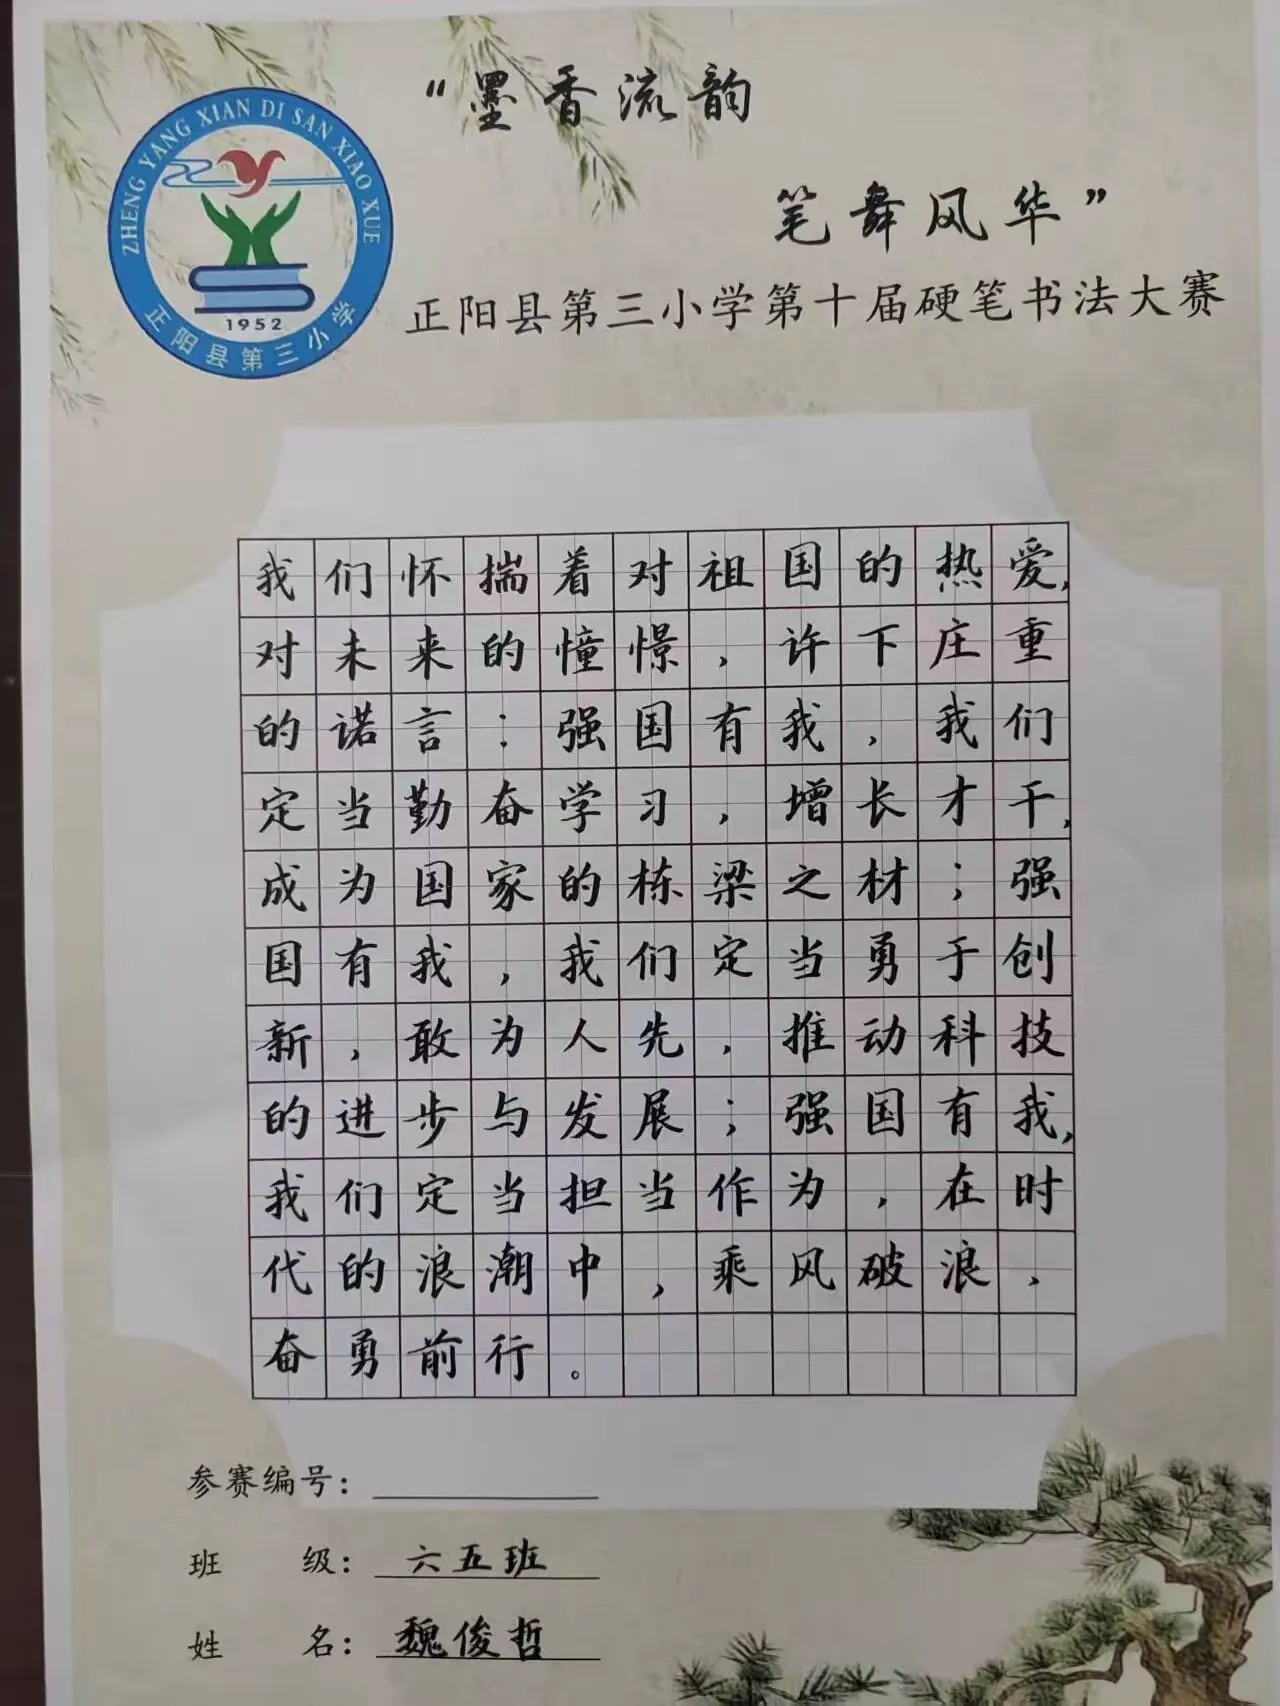 “墨香流韵
笔舞风华”
ZHENG YANG XIAN DI SAN XIAO XUE
1952
正阳县第三小学
正阳县第三小学第十届硬笔书法大赛
我们怀揣着对祖国的热爱,
对未来的憧憬，许下庄重
的诺言：强国有我，我们
定当勤奋学习，增长才干,
成为国家的栋梁之材；强
国有我，我们定当勇于创
新，敢为人先，推动科技
的进步与发展；强国有我,
我们定当担当作为，在时
代的浪潮中，乘风破浪，
奋勇前行。
参赛编号：
班 级：六五班
姓 名：魏俊哲